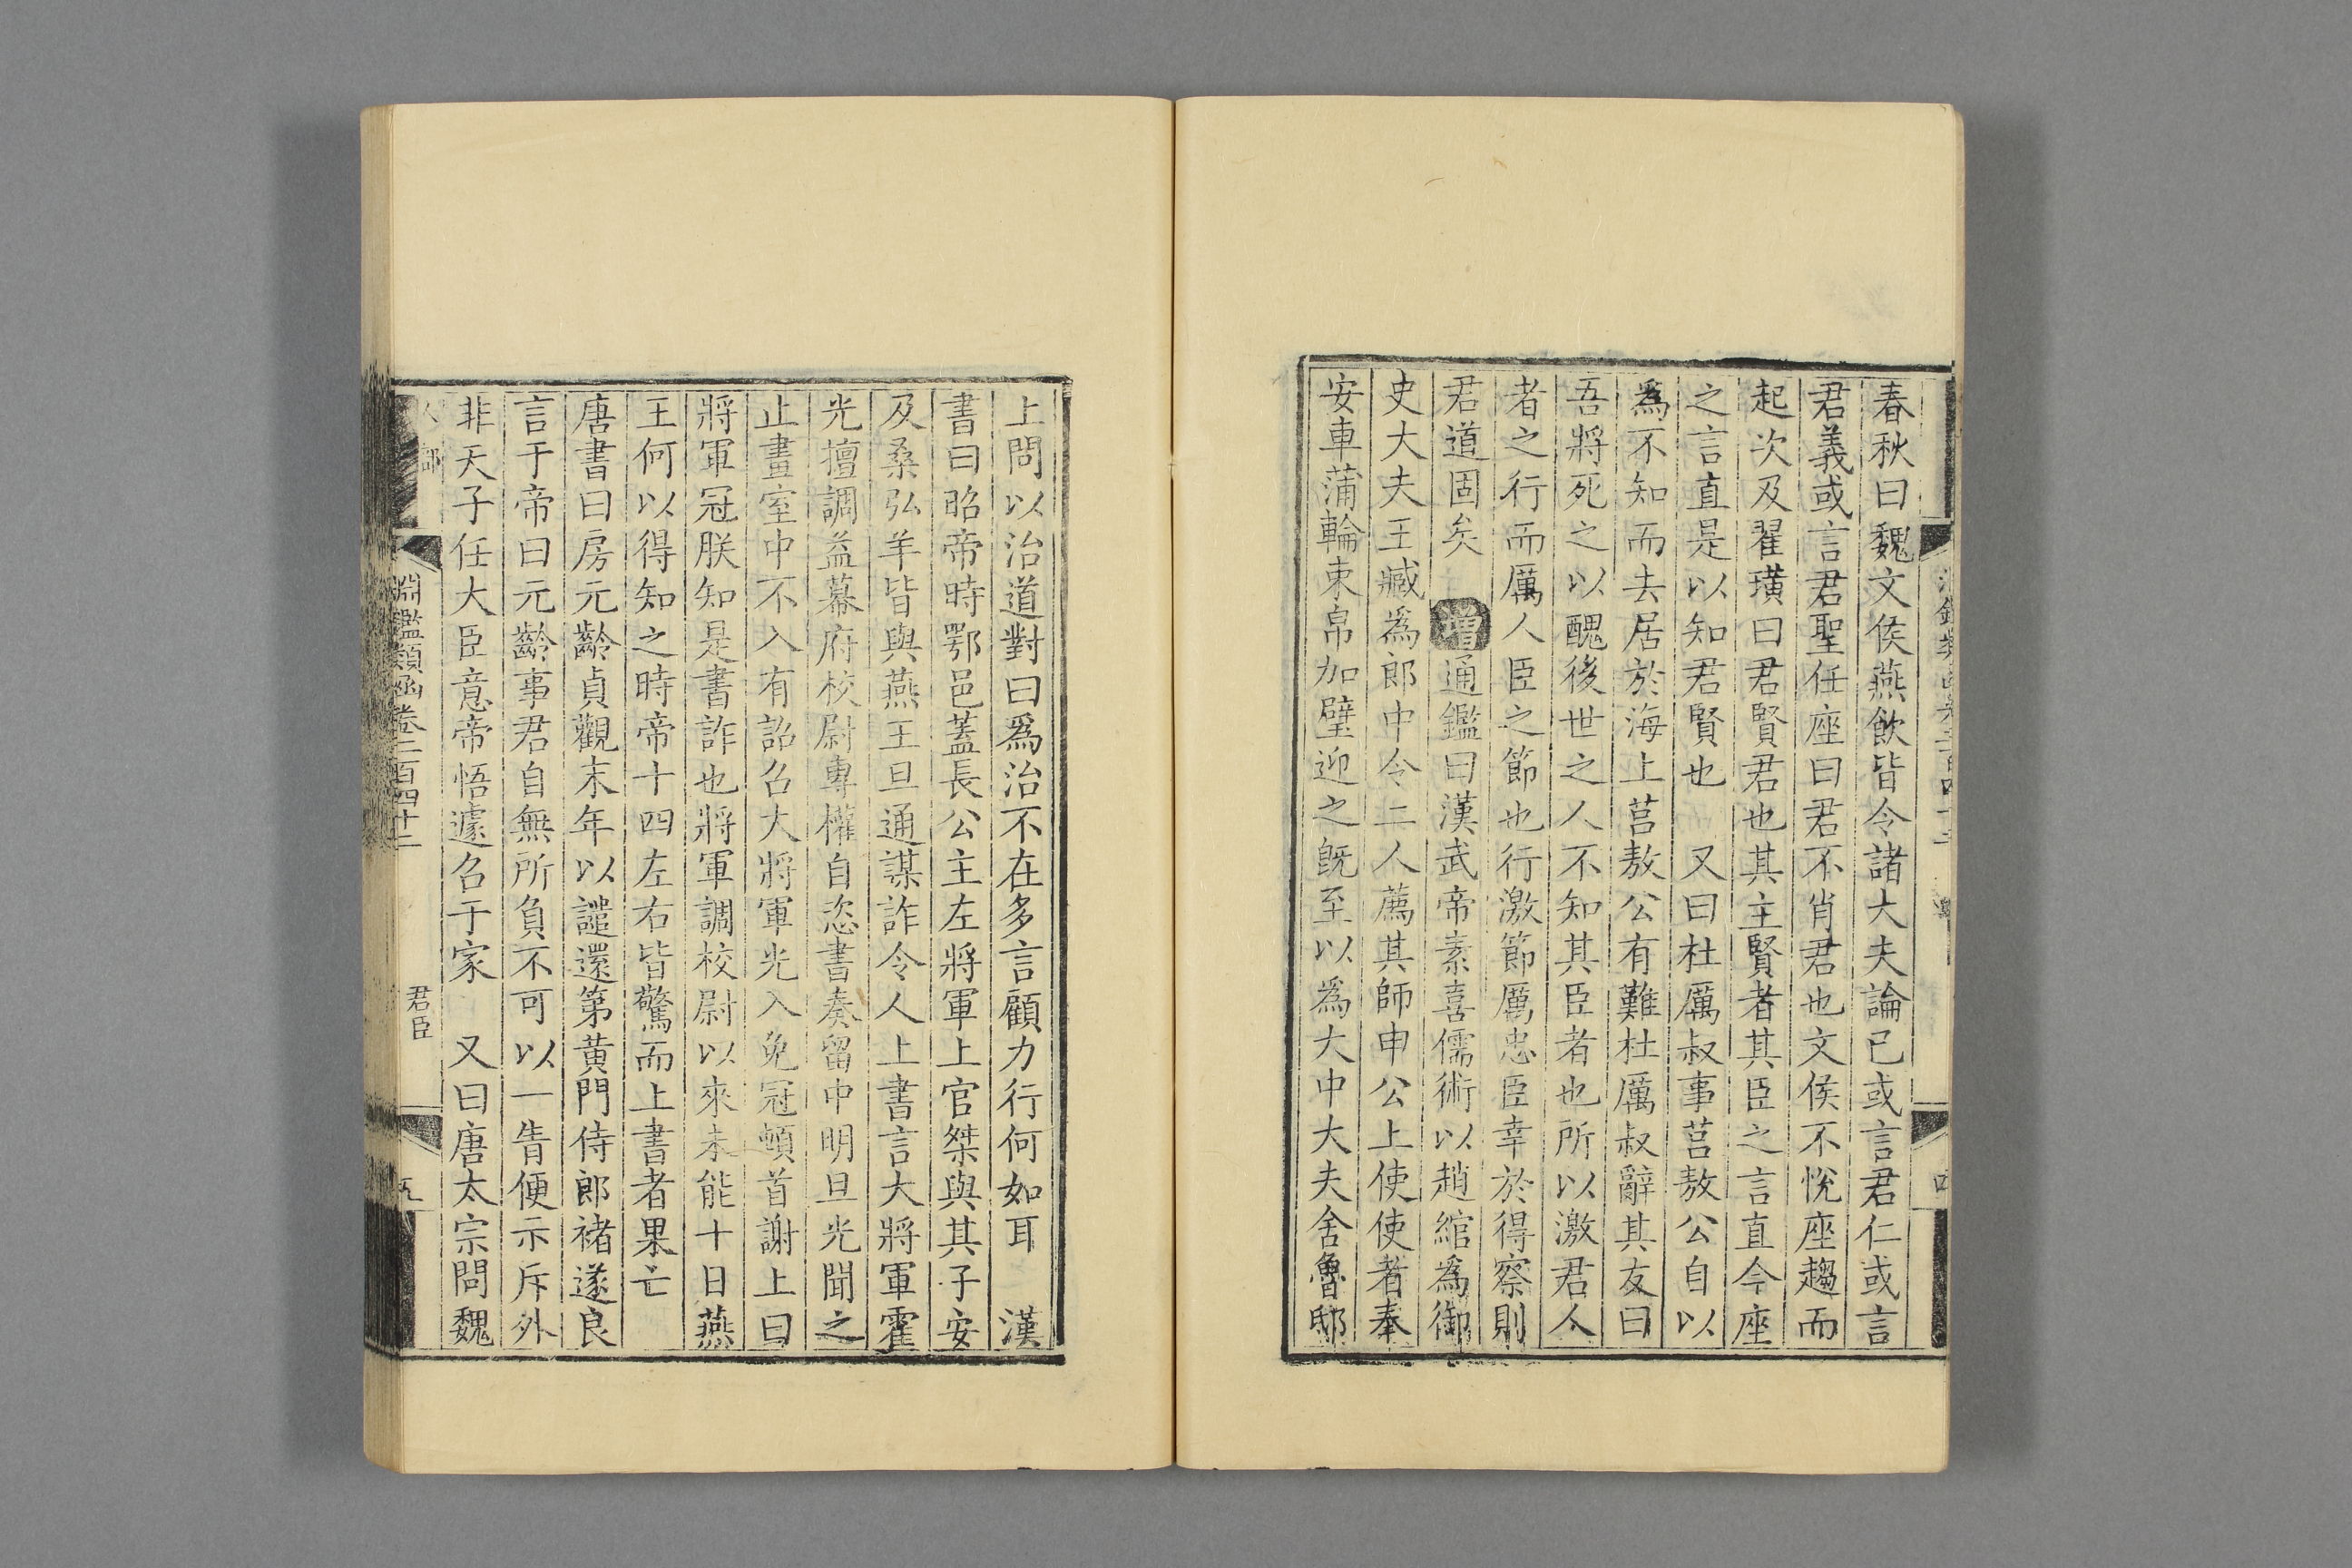 春秋曰魏文侯燕飲皆令諸大夫論已或言君仁或言
君義或言君聖任座曰君不肖君也文侯不悅座趨而
起次及翟璜曰君賢君也其主賢者其臣之言直今座
之言直是以知君賢也　又曰杜厲叔事莒敖公自以
爲不知而去居於海上莒敖公有難杜厲叔辭其友曰
吾將死之以醜後世之人不知其臣者也所以激君人
者之行而厲人臣之節也行激節厲忠臣幸於得察則
君道固矣　增通鑑曰漢武帝素喜儒術以趙綰爲御
史大夫王臧爲郎中令二人薦其師申公上使使者奉
安車蒲輪束帛加璧迎之既至以爲大中大夫舍魯邸
上問以治道對曰爲治不在多言顧力行何如耳　漢
書曰昭帝時鄂邑蓋長公主左將軍上官桀與其子安
及桑弘羊皆與燕王旦通謀詐令人上書言大將軍霍
光擅調益幕府校尉專權自恣書奏留中明旦光聞之
止畫室中不入有詔召大將軍光入免冠頓首謝上曰
將軍冠朕知是書詐也將軍調校尉以來未能十日燕
王何以得知之時帝十四左右皆驚而上書者果亡
唐書曰房元齡貞觀末年以譴還第黄門侍郎褚遂良
言于帝曰元齡事君自無所負不可以一眚便示斥外
非天子任大臣意帝悟遽召于家　又曰唐太宗問魏
淵鑑類函卷二百四十二
君臣